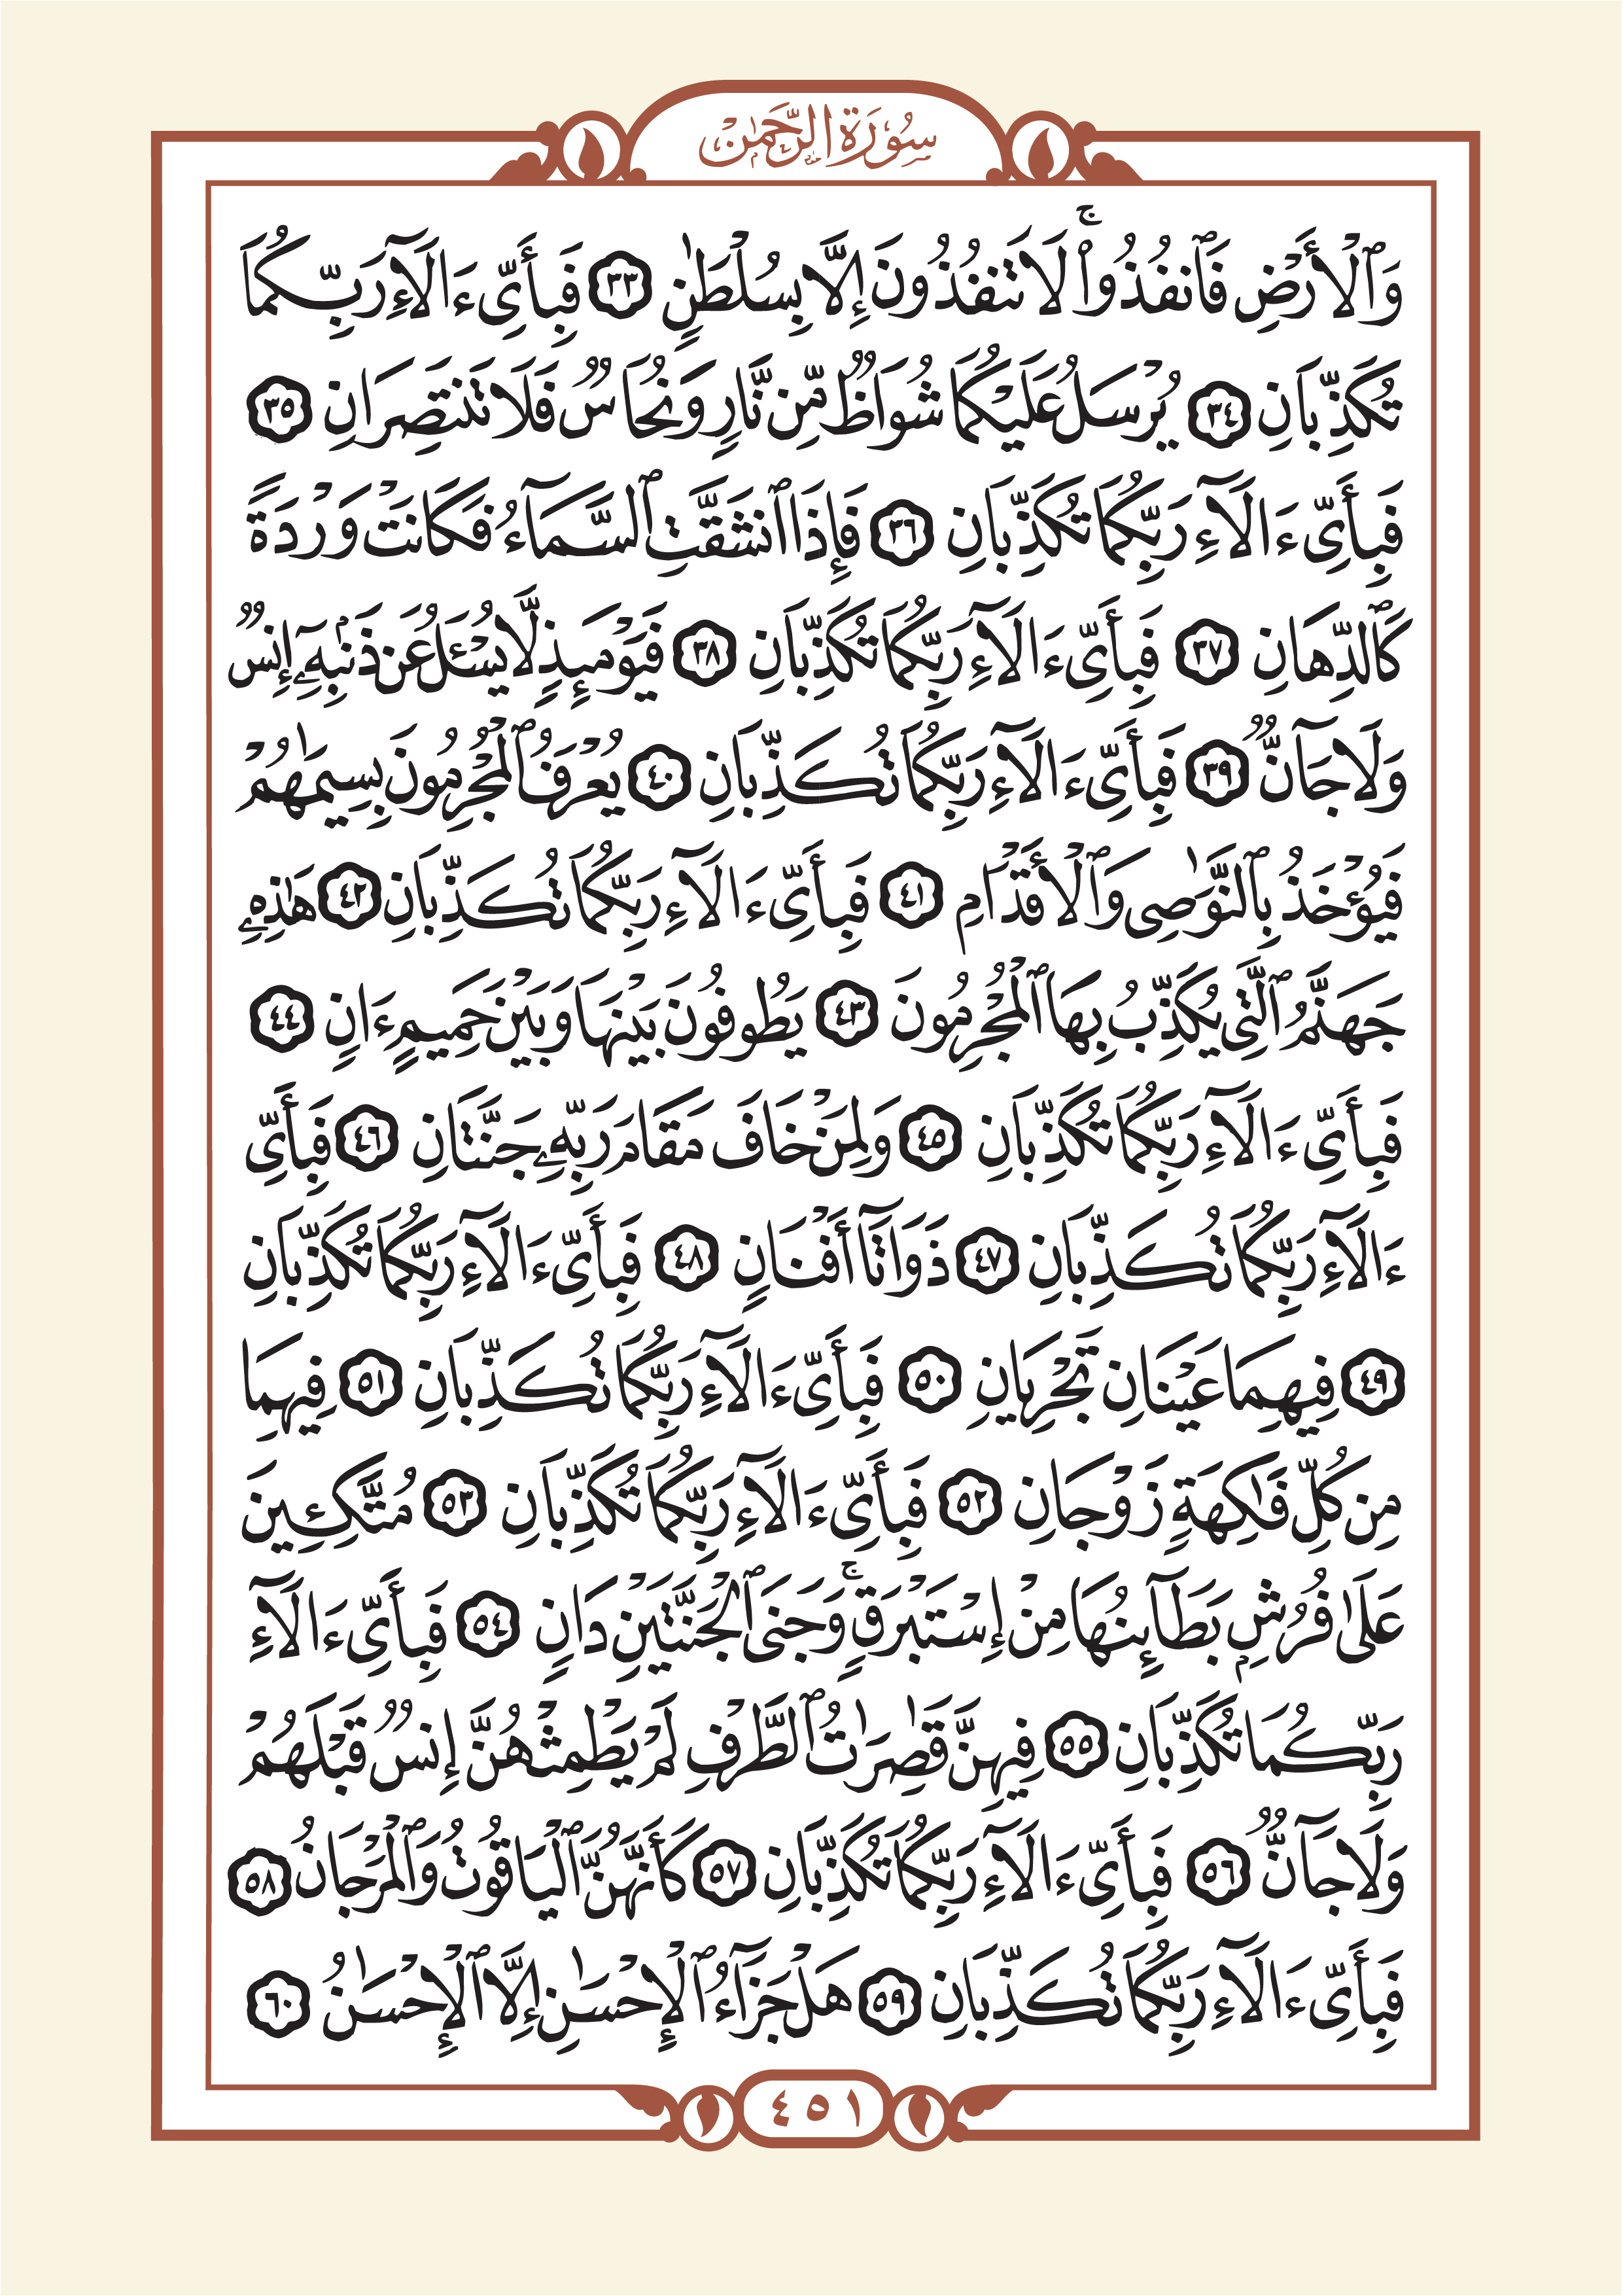 سُورَةُ الرَّحْمَٰن
وَٱلْأَرْضِ فَٱنفُذُوا۟ ۚ لَا تَنفُذُونَ إِلَّا بِسُلْطَٰنٍ ٣٣ فَبِأَىِّ ءَالَآءِ رَبِّكُمَا
تُكَذِّبَانِ ٣٤ يُرْسَلُ عَلَيْكُمَا شُوَاظٌ مِّن نَّارٍ وَنُحَاسٌ فَلَا تَنتَصِرَانِ ٣٥
فَبِأَىِّ ءَالَآءِ رَبِّكُمَا تُكَذِّبَانِ ٣٦ فَإِذَا ٱنشَقَّتِ ٱلسَّمَآءُ فَكَانَتْ وَرْدَةً
كَٱلدِّهَانِ ٣٧ فَبِأَىِّ ءَالَآءِ رَبِّكُمَا تُكَذِّبَانِ ٣٨ فَيَوْمَئِذٍ لَّا يُسْـَٔلُ عَن ذَنۢبِهِۦٓ إِنسٌ
وَلَا جَآنٌّ ٣٩ فَبِأَىِّ ءَالَآءِ رَبِّكُمَا تُكَذِّبَانِ ٤٠ يُعْرَفُ ٱلْمُجْرِمُونَ بِسِيمَٰهُمْ
فَيُؤْخَذُ بِٱلنَّوَٰصِى وَٱلْأَقْدَامِ ٤١ فَبِأَىِّ ءَالَآءِ رَبِّكُمَا تُكَذِّبَانِ ٤٢ هَٰذِهِۦ
جَهَنَّمُ ٱلَّتِى يُكَذِّبُ بِهَا ٱلْمُجْرِمُونَ ٤٣ يَطُوفُونَ بَيْنَهَا وَبَيْنَ حَمِيمٍ ءَانٍ ٤٤
فَبِأَىِّ ءَالَآءِ رَبِّكُمَا تُكَذِّبَانِ ٤٥ وَلِمَنْ خَافَ مَقَامَ رَبِّهِۦ جَنَّتَانِ ٤٦ فَبِأَىِّ
ءَالَآءِ رَبِّكُمَا تُكَذِّبَانِ ٤٧ ذَوَاتَآ أَفْنَانٍ ٤٨ فَبِأَىِّ ءَالَآءِ رَبِّكُمَا تُكَذِّبَانِ
٤٩ فِيهِمَا عَيْنَانِ تَجْرِيَانِ ٥٠ فَبِأَىِّ ءَالَآءِ رَبِّكُمَا تُكَذِّبَانِ ٥١ فِيهِمَا
مِن كُلِّ فَٰكِهَةٍ زَوْجَانِ ٥٢ فَبِأَىِّ ءَالَآءِ رَبِّكُمَا تُكَذِّبَانِ ٥٣ مُتَّكِـِٔينَ
عَلَىٰ فُرُشٍۭ بَطَآئِنُهَا مِنْ إِسْتَبْرَقٍ ۚ وَجَنَى ٱلْجَنَّتَيْنِ دَانٍ ٥٤ فَبِأَىِّ ءَالَآءِ
رَبِّكُمَا تُكَذِّبَانِ ٥٥ فِيهِنَّ قَٰصِرَٰتُ ٱلطَّرْفِ لَمْ يَطْمِثْهُنَّ إِنسٌ قَبْلَهُمْ
وَلَا جَآنٌّ ٥٦ فَبِأَىِّ ءَالَآءِ رَبِّكُمَا تُكَذِّبَانِ ٥٧ كَأَنَّهُنَّ ٱلْيَاقُوتُ وَٱلْمَرْجَانُ ٥٨
فَبِأَىِّ ءَالَآءِ رَبِّكُمَا تُكَذِّبَانِ ٥٩ هَلْ جَزَآءُ ٱلْإِحْسَٰنِ إِلَّا ٱلْإِحْسَٰنُ ٦٠
٤٥١